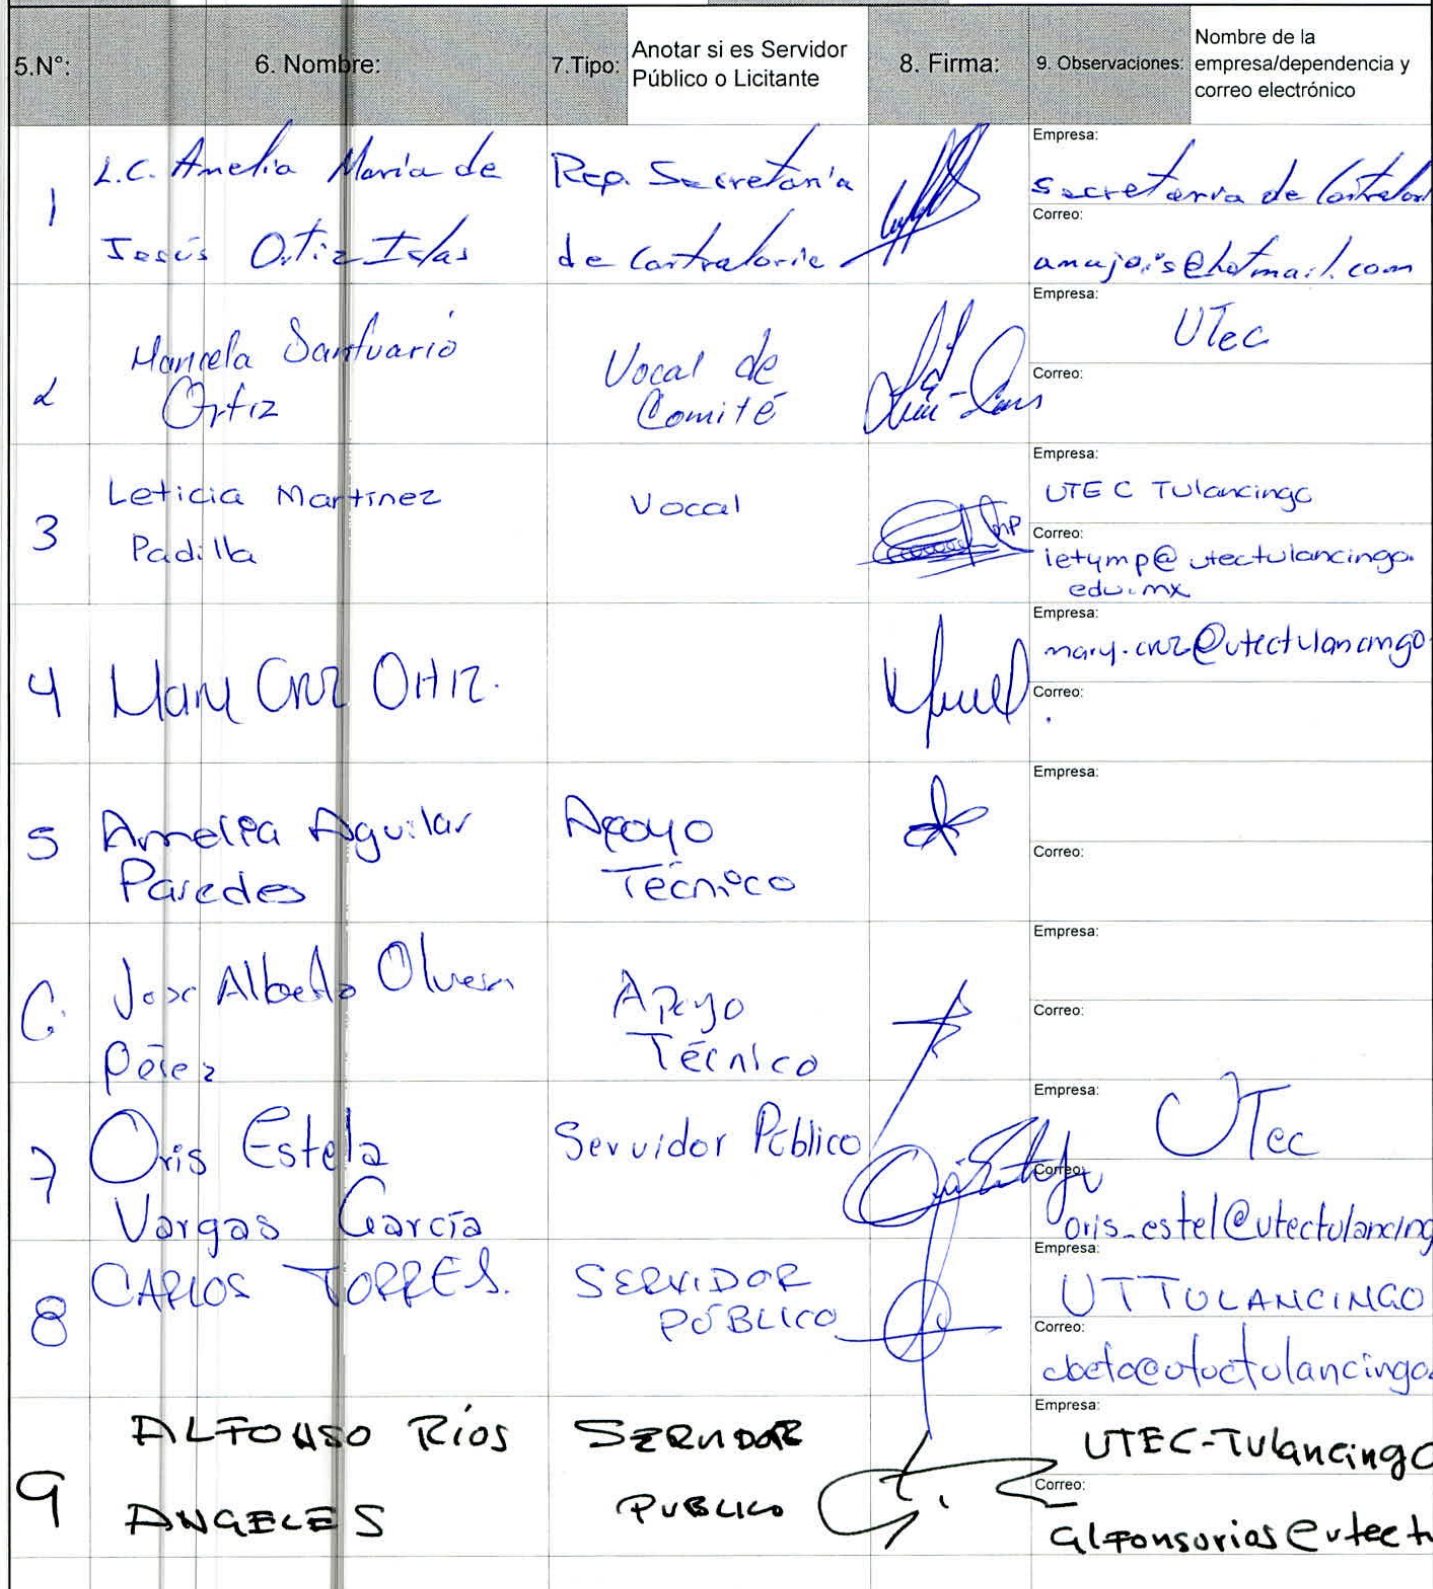 5.N°: 6. Nombre: 7.Tipo: Anotar si es Servidor Público o Licitante 8. Firma: 9. Observaciones: Nombre de la empresa/dependencia y correo electrónico
1 L.C. Amelia María de Rep. Secretaría
Jesús Ortiz Islas de Contraloria
Empresa:
Secretaria de
Correo:
amajois@hotmail.com
2 Maricela Santuario Vocal de
Ortiz Comité
Empresa:
UTec
Correo:
3 Leticia Martínez Vocal
Padilla
Empresa:
UTEC Tulancingo
Correo:
letymp@utectulancingo.
edu.mx
4 Mary Cruz Ortiz.
Empresa:
mary.cruz@utectulancingo
Correo:
5 Amelia Aguilar Apoyo
Paredes Técnico
Empresa:
Correo:
6. Jose Alberto Olvera Apoyo
Pérez Técnico
Empresa:
Correo:
7 Oris Estela Servidor Público
Vargas García
Empresa:
UTec
Correo:
oris_estel@utectulancing
8 CARLOS TORRES. SERVIDOR
PÚBLICO
Empresa:
UTTULANCINGO
Correo:
9 ALFONSO RíOS SERVIDOR
ANGELES PUBLICO
Empresa:
UTEC-Tulancingo
Correo:
alfonsorios@utect